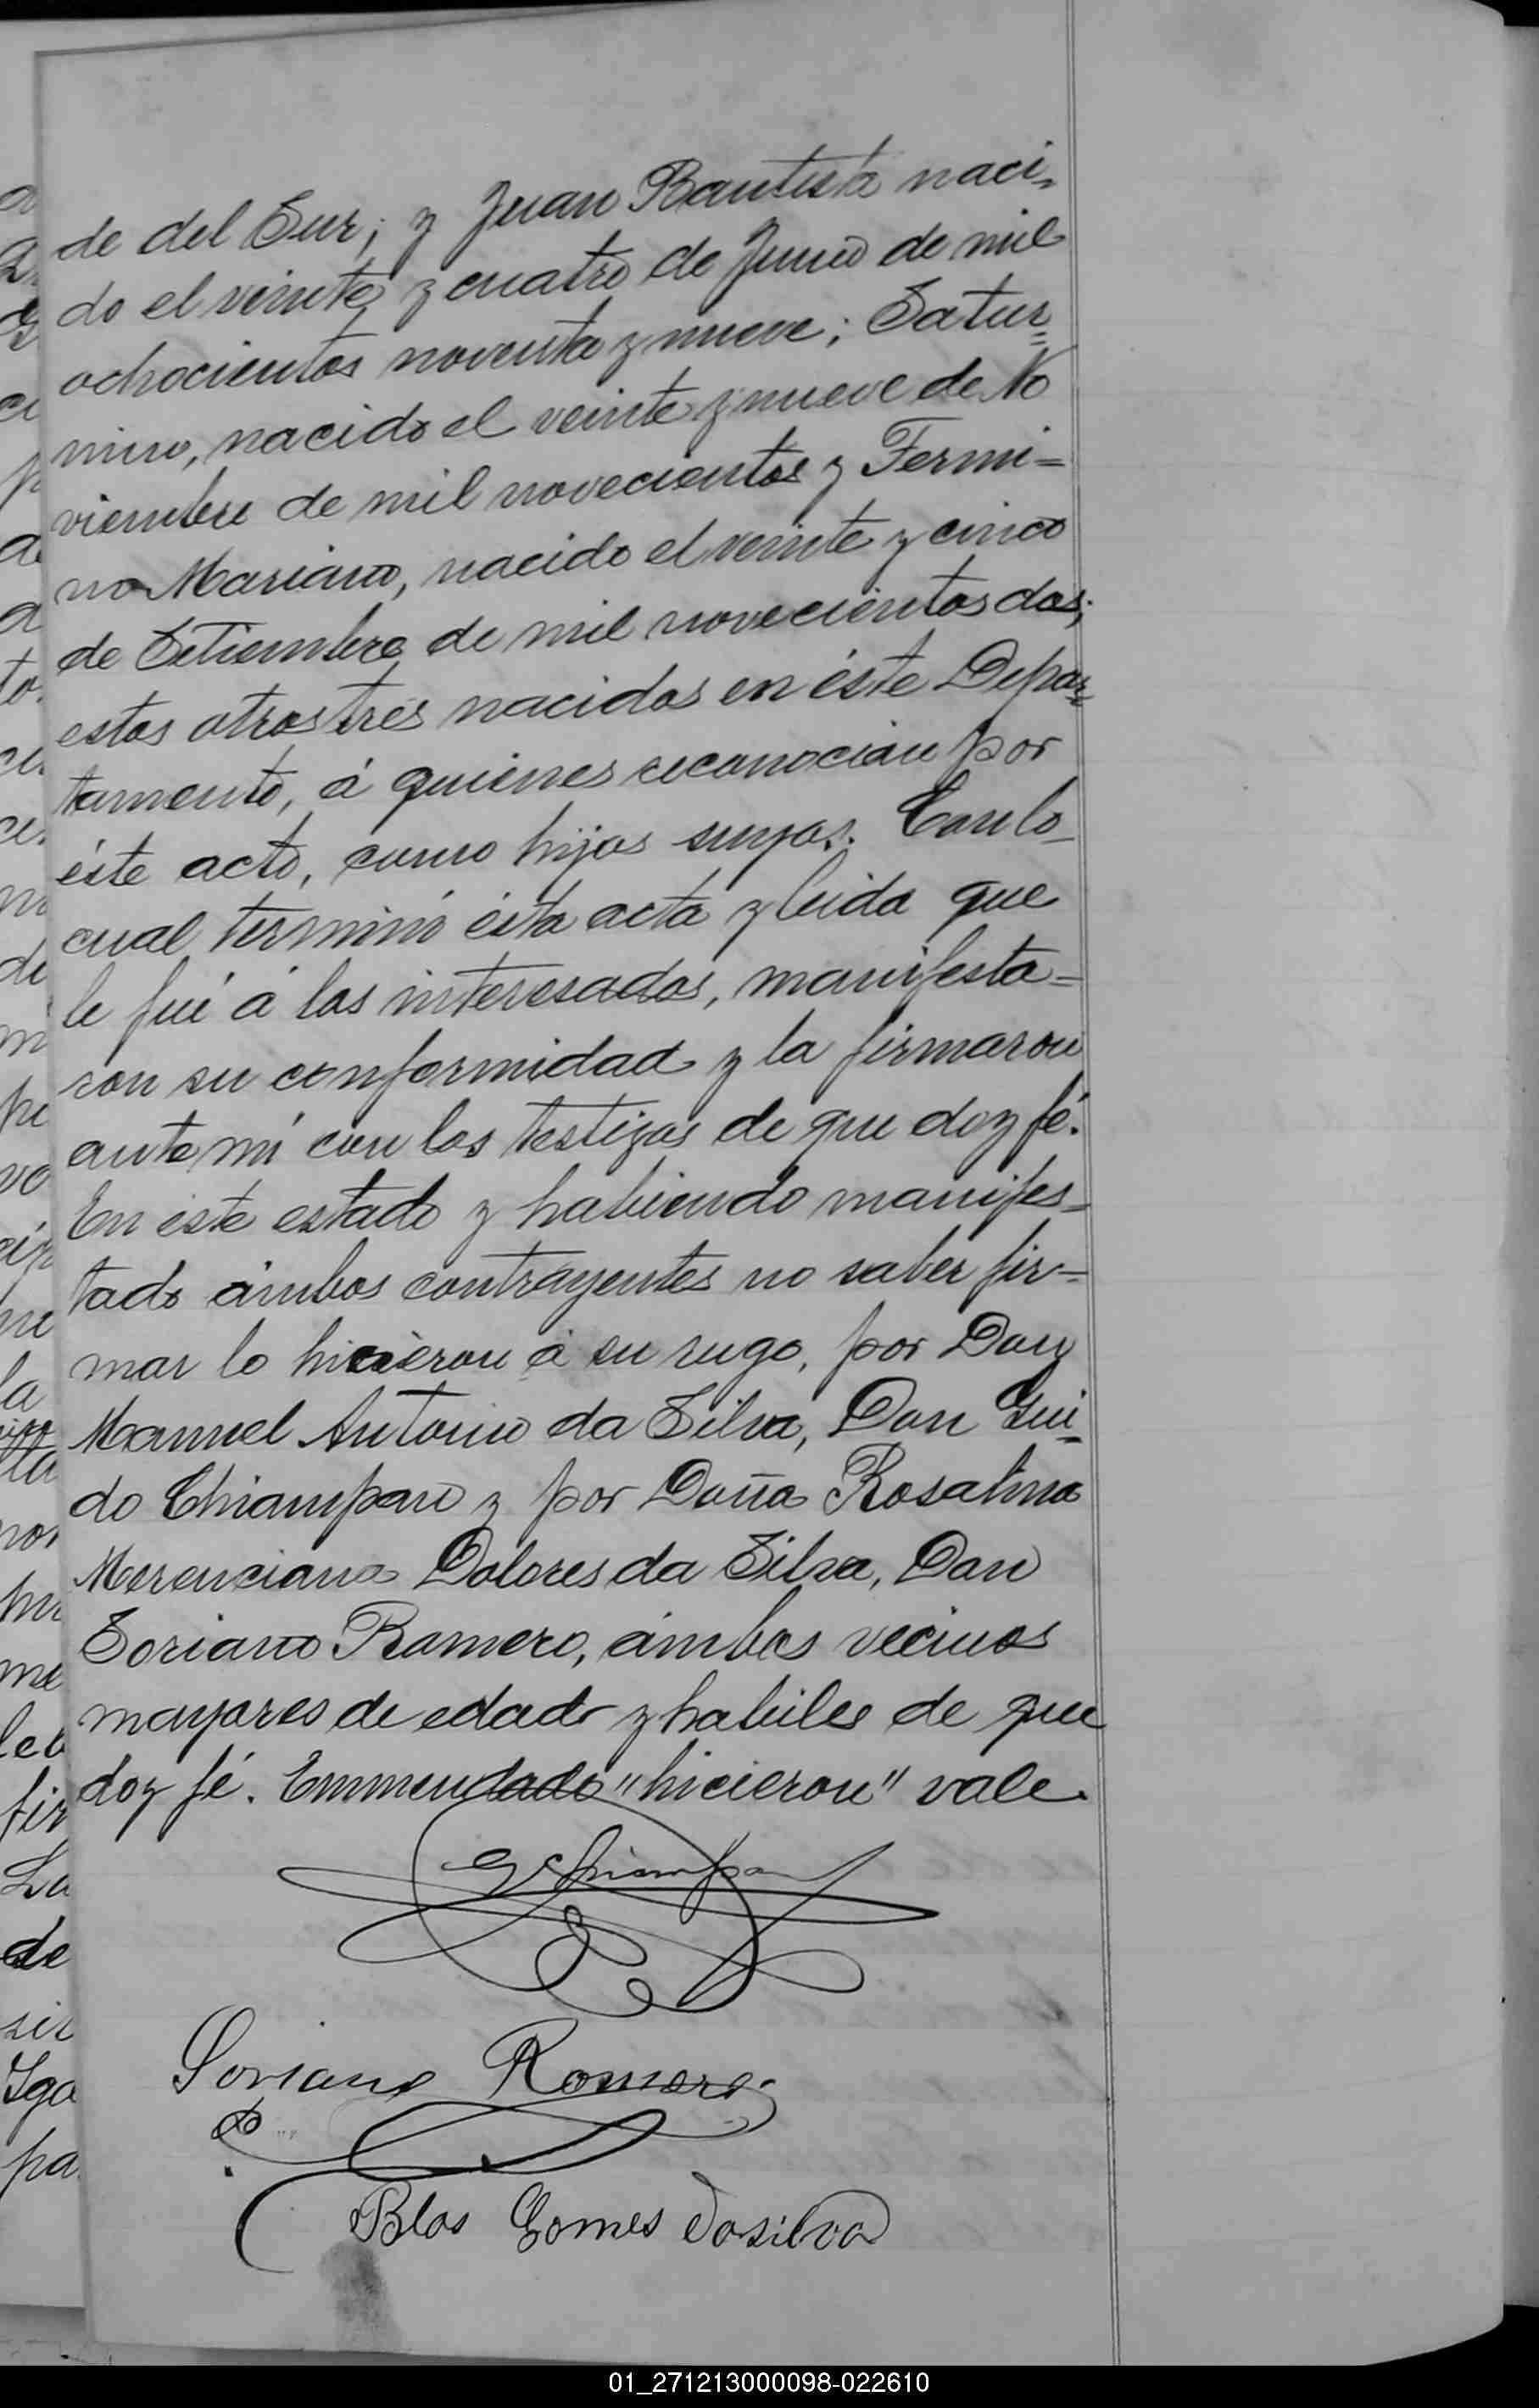 de del Sur; y Juan Bautista naci-
do el veinte y cuatro de Junio de mil
ochocientos noventa y nueve; Satur=
nino, nacido el veinte y nueve de No
viembre de mil novecientos y Fermi=
no Mariano, nacido el veinte y cinco
de Setiembre de mil novecientos dos;
estos otros tres nacidos en éste Depar=
tamento, á quienes reconocian por
éste acto, como hijos suyos. Con lo
cual terminó ésta acta y leida que
le fué á los interesados, manifesta=
ron su conformidad y la firmaron
ante mi con los testigos de que doy fé.
En éste estado y habiendo manifes-
tado ámbos contrayentes no saber fir=
mar lo hicieron á su rugo, por Don
Manuel Antonio da Silva, Don Gui=
do Chiampan y por Doña Rosalina
Merenciana Dolores da Silva, Don
Soriano Romero, ámbos vecinos
mayores de edad y habiles de que
doy fé. Emmendado "hicieron" vale.
GChiampan
Soriano Romero
Blas Gomes dasilva
01_271213000098-022610